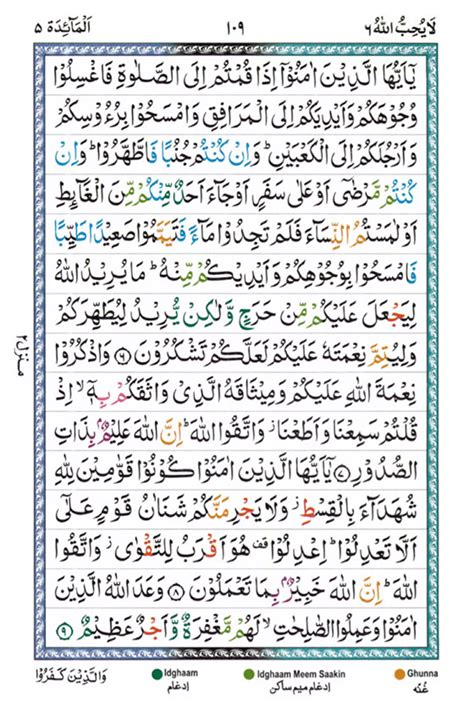 اَلْمَآئِدَة ۵ ۱۰۹ لَا يُحِبُّ اللّٰهُ ۶
يٰۤاَيُّهَا الَّذِيْنَ اٰمَنُوْۤا اِذَا قُمْتُمْ اِلَى الصَّلٰوةِ فَاغْسِلُوْا
وُجُوْهَكُمْ وَاَيْدِيَكُمْ اِلَى الْمَرَافِقِ وَامْسَحُوْا بِرُءُوْسِكُمْ
وَاَرْجُلَكُمْ اِلَى الْكَعْبَيْنِ ؕ وَاِنْ كُنْتُمْ جُنُبًا فَاطَّهَّرُوْا ؕ وَاِنْ
كُنْتُمْ مَّرْضٰۤى اَوْ عَلٰى سَفَرٍ اَوْ جَآءَ اَحَدٌ مِّنْكُمْ مِّنَ الْغَآئِطِ
اَوْ لٰمَسْتُمُ النِّسَآءَ فَلَمْ تَجِدُوْا مَآءً فَتَيَمَّمُوْا صَعِيْدًا طَيِّبًا
فَامْسَحُوْا بِوُجُوْهِكُمْ وَاَيْدِيْكُمْ مِّنْهُ ؕ مَا يُرِيْدُ اللّٰهُ
لِيَجْعَلَ عَلَيْكُمْ مِّنْ حَرَجٍ وَّلٰكِنْ يُّرِيْدُ لِيُطَهِّرَكُمْ
وَلِيُتِمَّ نِعْمَتَهٗ عَلَيْكُمْ لَعَلَّكُمْ تَشْكُرُوْنَ ۶ وَاذْكُرُوْا
نِعْمَةَ اللّٰهِ عَلَيْكُمْ وَمِيْثَاقَهُ الَّذِيْ وَاثَقَكُمْ بِهٖۤ ۙ اِذْ
قُلْتُمْ سَمِعْنَا وَاَطَعْنَا ؗ وَاتَّقُوا اللّٰهَ ؕ اِنَّ اللّٰهَ عَلِيْمٌۢ بِذَاتِ
الصُّدُوْرِ ۷ يٰۤاَيُّهَا الَّذِيْنَ اٰمَنُوْا كُوْنُوْا قَوّٰمِيْنَ لِلّٰهِ
شُهَدَآءَ بِالْقِسْطِ ؗ وَلَا يَجْرِمَنَّكُمْ شَنَاٰنُ قَوْمٍ عَلٰۤى
اَلَّا تَعْدِلُوْا ؕ اِعْدِلُوْا ࣞ هُوَ اَقْرَبُ لِلتَّقْوٰى ؗ وَاتَّقُوا
اللّٰهَ ؕ اِنَّ اللّٰهَ خَبِيْرٌۢ بِمَا تَعْمَلُوْنَ ۸ وَعَدَ اللّٰهُ الَّذِيْنَ
اٰمَنُوْا وَعَمِلُوا الصّٰلِحٰتِ ۙ لَهُمْ مَّغْفِرَةٌ وَّاَجْرٌ عَظِيْمٌ ۹
منزل ۲
وَالَّذِيْنَ كَفَرُوْا
Idghaam
ادغام
Idghaam Meem Saakin
ادغام میم ساکن
Ghunna
غُنّه